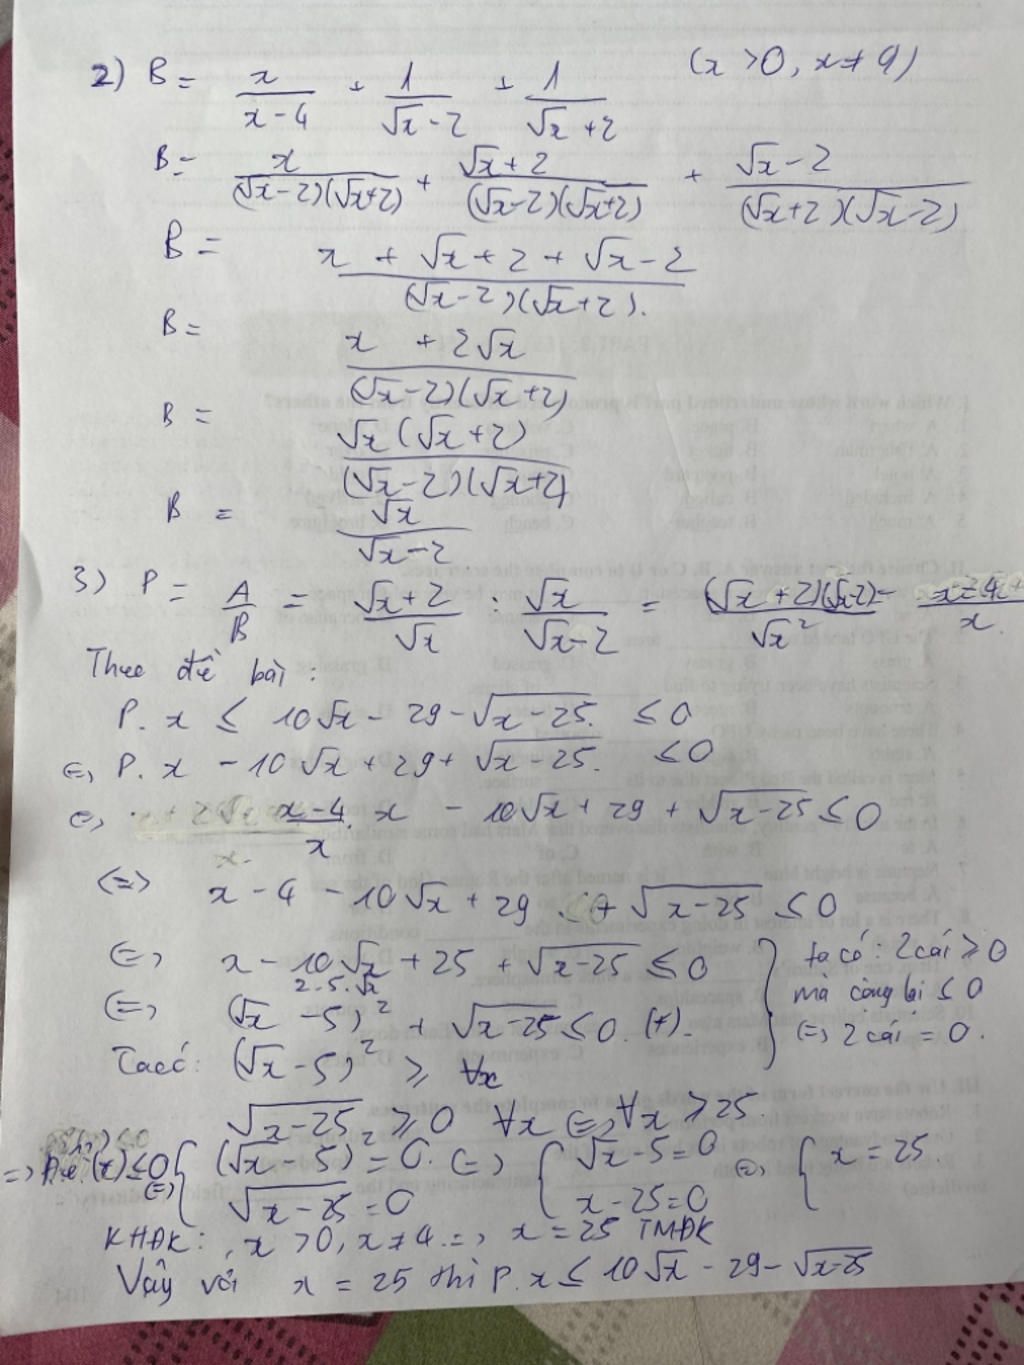 2) B = x/(x-4) + 1/(√x-2) + 1/(√x+2) (x >0, x≠9)
B = x/((√x-2)(√x+2)) + (√x+2)/((√x-2)(√x+2)) + (√x-2)/((√x+2)(√x-2))
B = (x + √x+2 + √x-2)/((√x-2)(√x+2)).
B = (x + 2√x)/((√x-2)(√x+2))
B = (√x(√x+2))/((√x-2)(√x+2)
B = √x/(√x-2)
3) P = A/B = (√x+2)/√x : √x/(√x-2) = ((√x+2)(√x-2))/√x² =
Theo đề bài:
P. x ≤ 10√x - 29 - √x-25. ≤ 0
(=) P. x - 10√x + 29 + √x-25. ≤0
(=) (x-4)/x . x - 10√x + 29 + √x-25 ≤ 0
(=) x - 4 - 10√x + 29 + √x-25 ≤ 0
(=) x - 10√x + 25 + √x-25 ≤ 0 ta có: 2 cái ≥ 0
2.5.√x mà cộng lại ≤ 0
(=) (√x - 5)² + √x-25 ≤ 0. (*). (=) 2 cái = 0.
Ta có: (√x - 5)² ≥ ∀x
√x-25 ≥ 0 ∀x (=) ∀x ≥ 25.
=> (*) ≤0 (=) { (√x - 5)² = 0. (=) { √x-5=0 (=) { x = 25.
√x-25 = 0 x-25=0
KHĐK: x >0, x≠4 => x = 25 TMĐK
Vậy với x = 25 thì P. x ≤ 10√x - 29 - √x-25